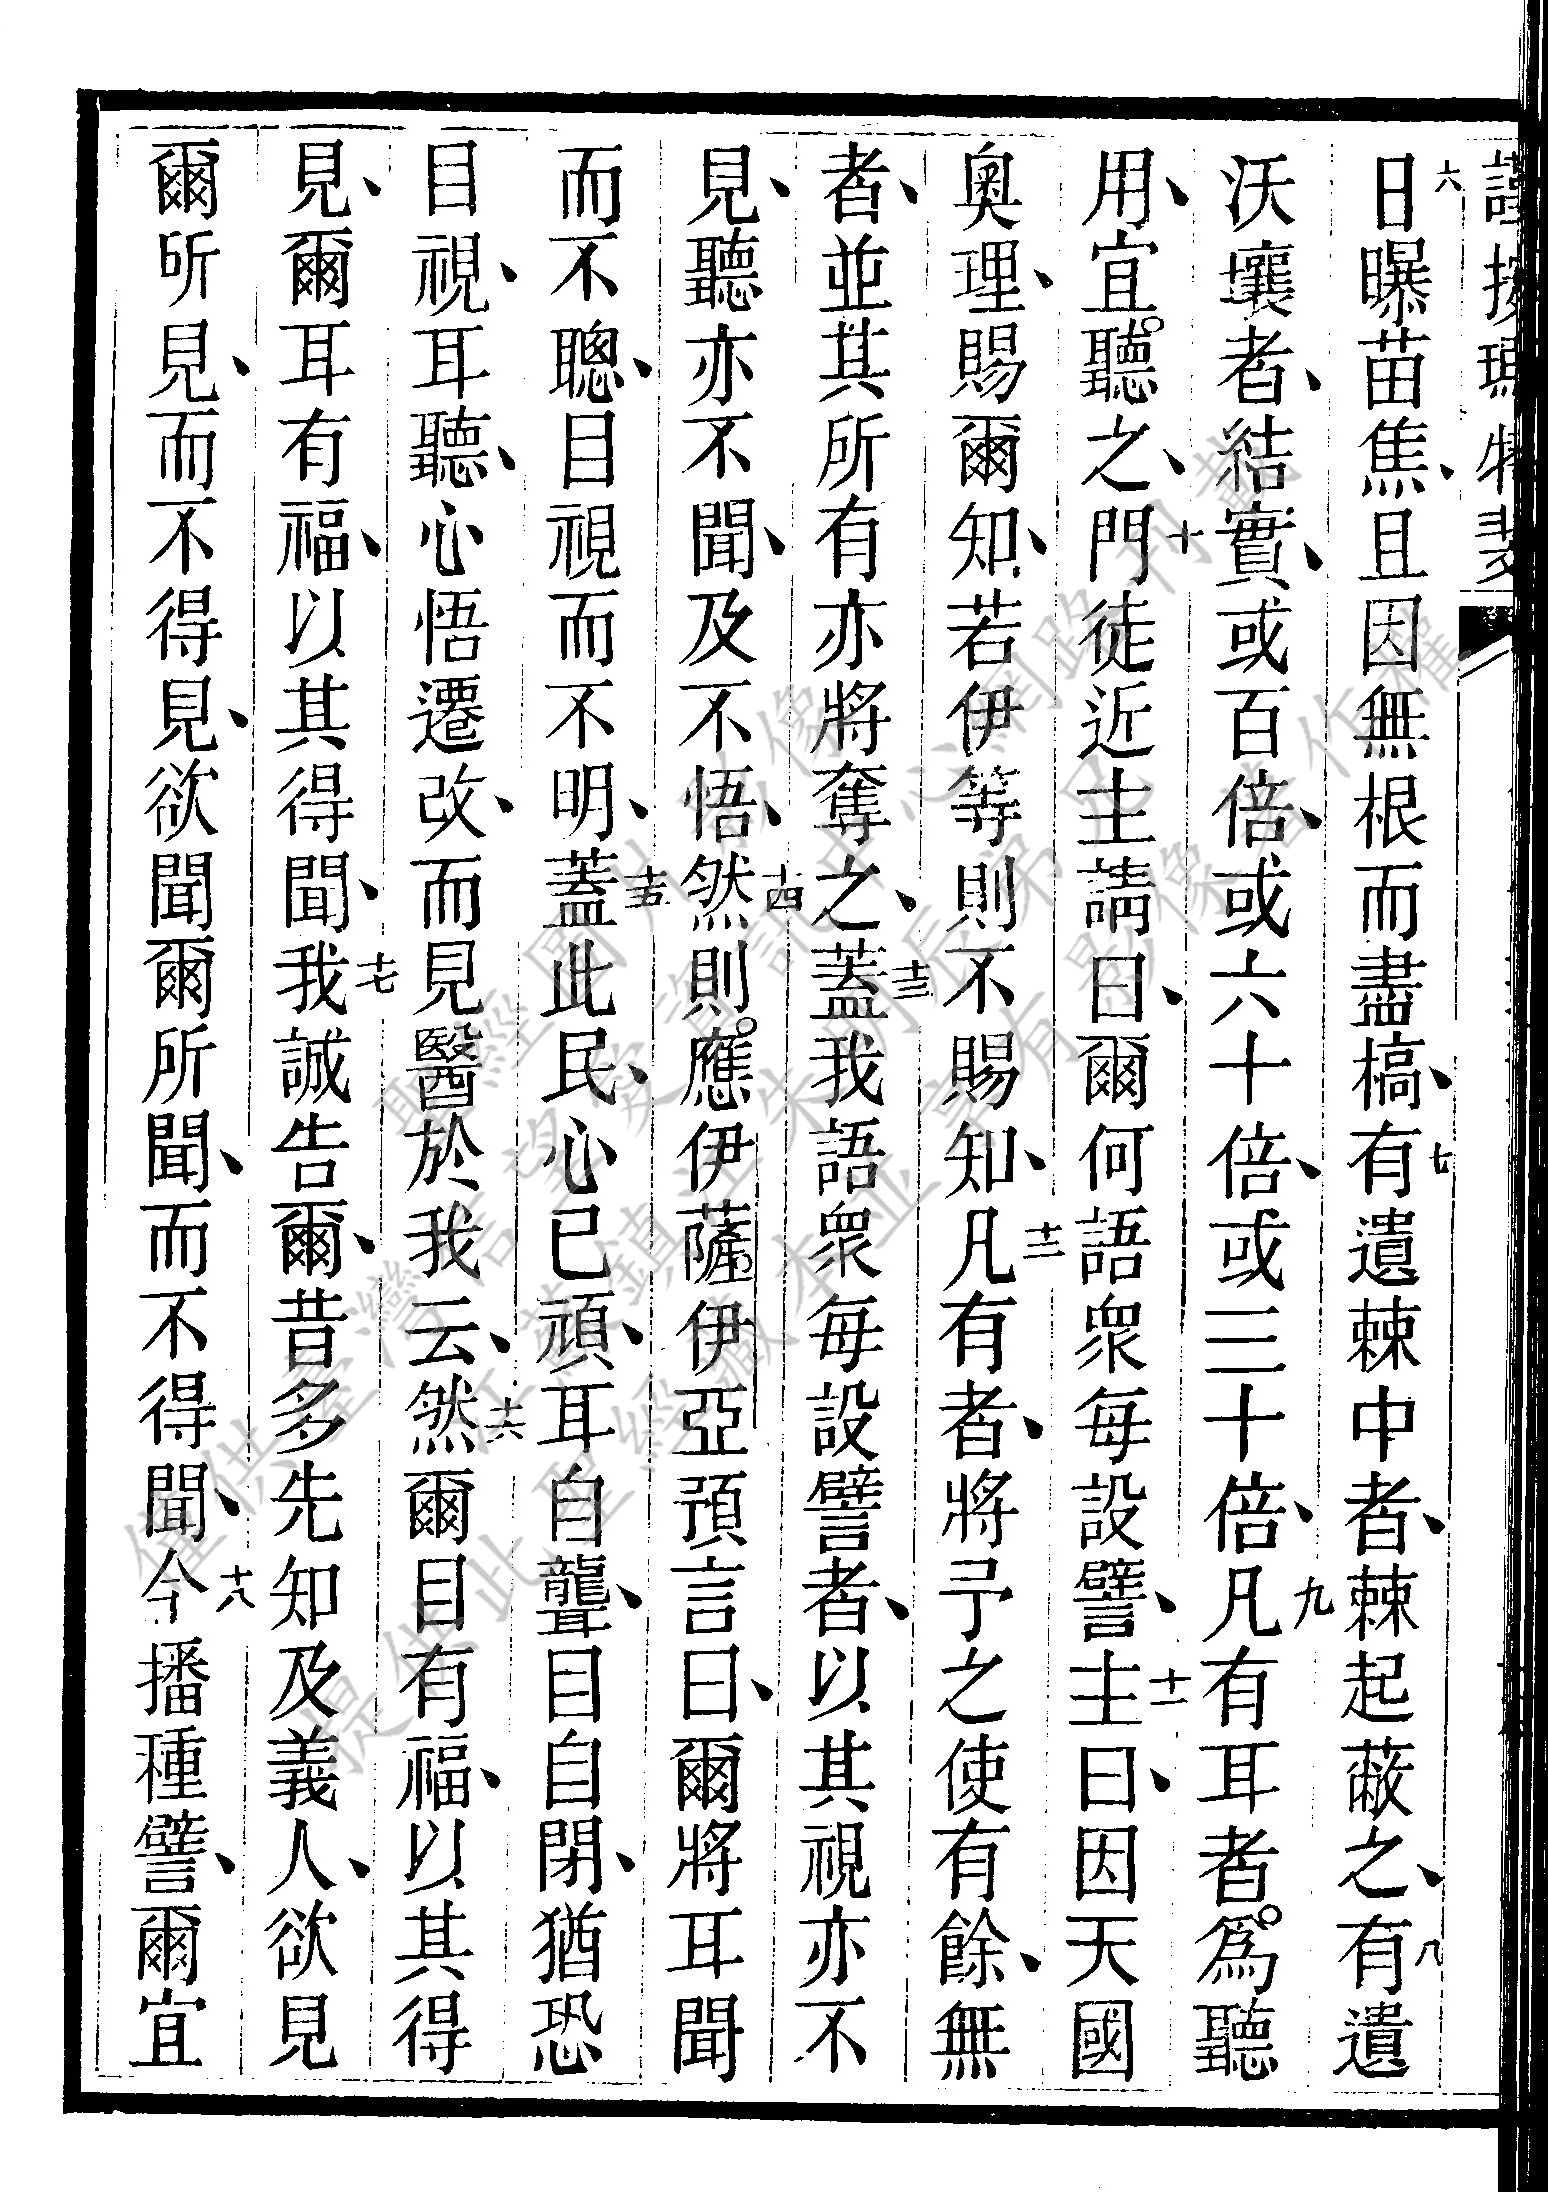 六日曝苗焦、且因無根而盡槁、七有遺棘中者、棘起蔽之、八有遺
沃壤者、結實、或百倍、或六十倍、或三十倍、九凡有耳者。為聽
用、宜。聽之、十門徒近主請曰、爾何語衆每設譬、十一主曰、因天國
奧理、賜爾知、若伊等則不賜知、十二凡有者、將予之使有餘、無
者、並其所有亦將奪之、十三蓋我語衆每設譬者、以其視亦不
見、聽亦不聞、及不悟、十四然則。應伊薩伊亞預言曰、爾將耳聞
而不聰、目視而不明、十五蓋此民、心已頑、耳自聾、目自閉、猶恐
目視、耳聽、心悟遷改、而見醫於我云、十六然爾目有福、以其得
見、爾耳有福、以其得聞、十七我誠告爾、昔多先知及義人、欲見
爾所見、而不得見、欲聞爾所聞、而不得聞、十八今播種譬、爾宜